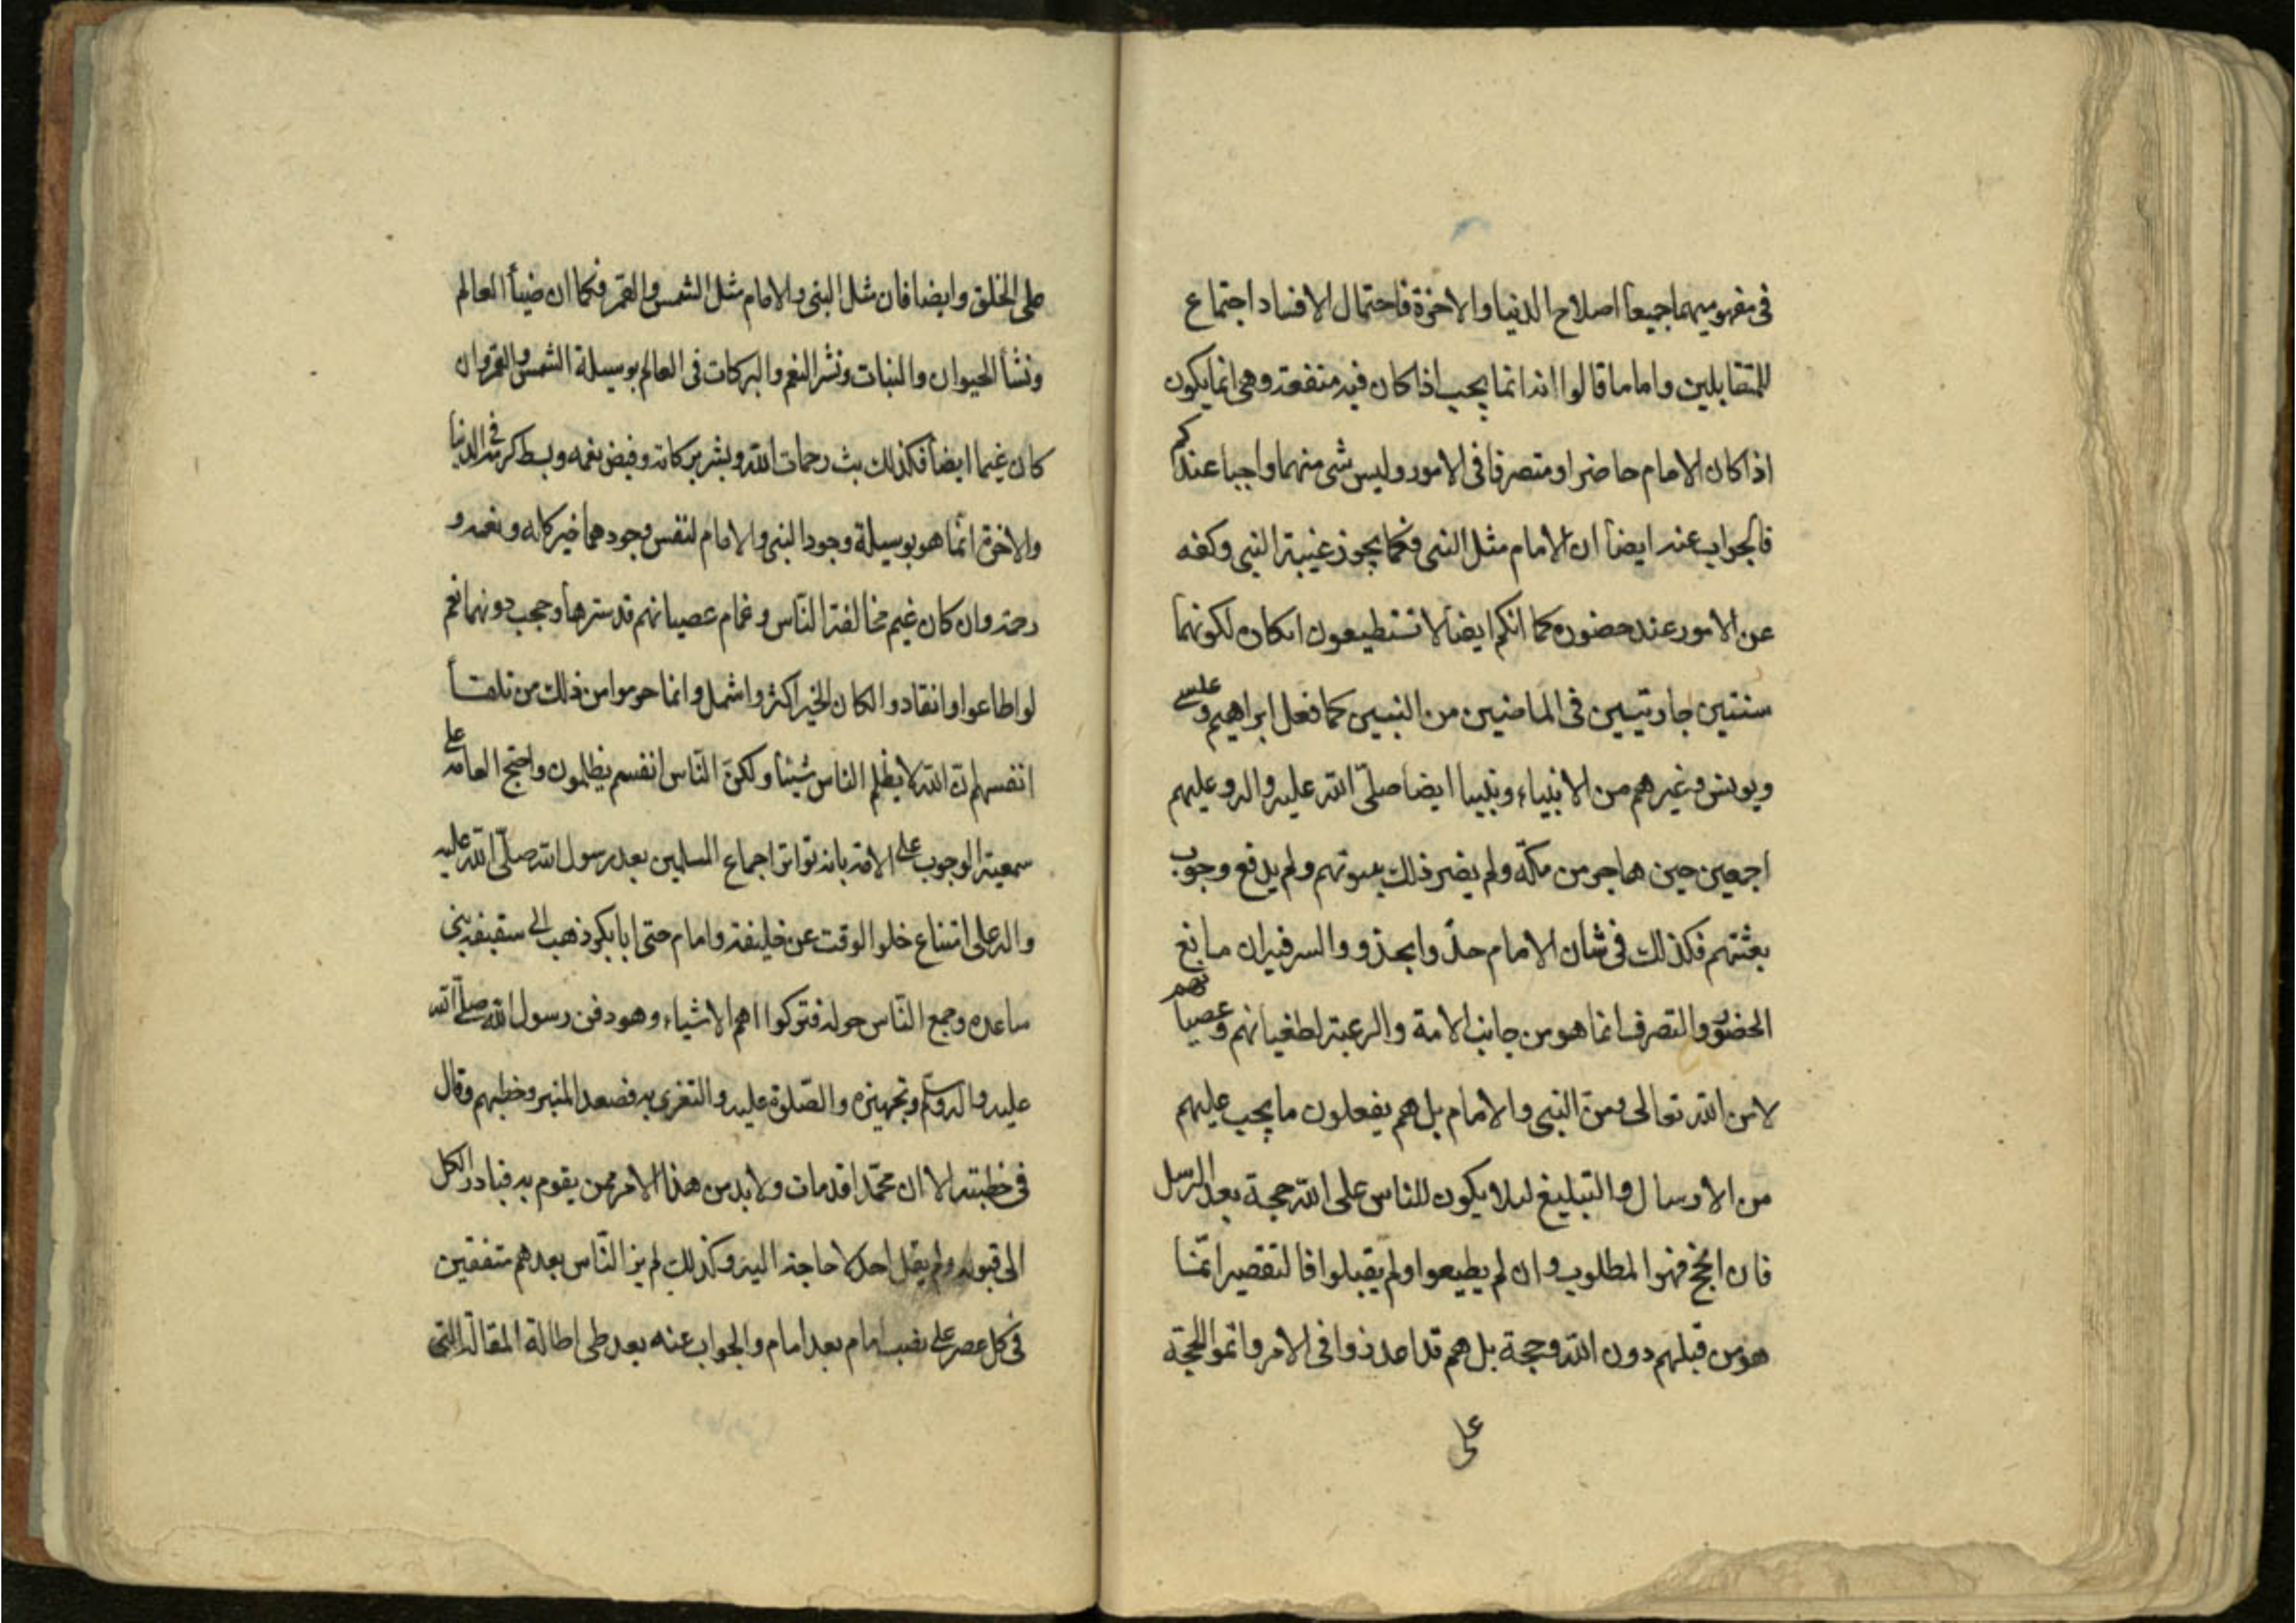 فى مفهوميهما جميعا اصلاح الدنيا والاخرة فاحتمال الافساد اجتماع
للمتقابلين واما ما قالوا انه انما يجب اذا كان فيه منفعة وهى انما يكون
اذا كان الامام حاضرا ومتصرفا فى الامور وليس شى منهما واجبا عندكم
فالجواب عنه ايضا ان الامام مثل النبى فكما يجوز غيبة النبى وكفه
عن الامور عند حضوره كما انكم ايضا لا تستطيعون انكار لكونهما
سنتين جاريتين فى الماضين من النبيين كما فعل ابراهيم و
ويونس وغيرهم من الانبياء ونبينا ايضا صلى الله عليه واله وعليهم
اجمعين حين هاجر من مكة ولم يضر ذلك بنبوتهم ولم يدفع وجوب
بعثتهم فكذلك فى شان الامام والسر فيه ان مانع
الحضور والتصرف انما هو من جانب الامة والرعية لطغيانهم وعصيانهم
لا من الله تعالى ومن النبى والامام بل هم يفعلون ما يجب عليهم
من الارسال والتبليغ لئلا يكون للناس على الله حجة بعد الرسل
فان انجح فهو المطلوب وان لم يطيعوا ولم يقبلوا فالتقصير انما
هو من قبلهم دون الله وحججه بل هم قد اعذروا فى الامر واتموا الحجة
على
على الخلق وايضا فان مثل النبى والامام مثل الشمس والقمر فكما ان ضياء العالم
ونشأ الحيوان والنبات ونشر النعم والبركات فى العالم بوسيلة الشمس والقمر وان
كان غيما ايضا فكذلك بث رحمات الله ونشر بركاته وفيض نعمه وبسط كرمه فى الدنيا
والاخرة انما هو بوسيلة وجود النبى والامام لنفس وجودهما خير كله ونعمه و
رحمة وان كان غيم مخالفة الناس وغمام عصيانهم قد سترها وحجب دونهما نعم
لو اطاعوا وانقادوا لكان الخير اكثر واشمل وانما حرموا من ذلك من تلقاء
انفسهم ان الله لا يظلم الناس شيئا ولكن الناس انفسهم يظلمون واحتج العامة على
سمعية الوجوب على الامة بانه تواتر اجماع المسلمين بعد رسول الله صلى الله عليه
واله على امتناع خلو الوقت عن خليفة وامام حتى ابابكر ذهب الى سقيفة بنى
ساعده وجمع الناس حوله فتركوا اهم الاشياء وهو دفن رسول الله صلى الله
عليه واله وسلم وتجهيزه والصلوة عليه والتعزى به فصعد المنبر وخطبهم وقال
فى خطبته الا ان محمدا قد مات ولا بد من هذا الامر ممن يقوم به فبادر الكل
الى قبوله ولم يقل احد لا حاجة اليه وكذلك لم يزل الناس بعدهم متفقين
فى كل عصر على نصب امام بعد امام والجواب عنه بعد طى اطالة المقالة التى